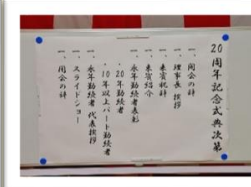 20周年記念式典次第
一、開会の辞
一、理事長 挨拶
一、来賓祝辞
一、来賓紹介
一、永年勤続者表彰
・20年勤続者
・10年以上パート勤続者
一、永年勤続者 代表挨拶
一、スライドショー
一、閉会の辞